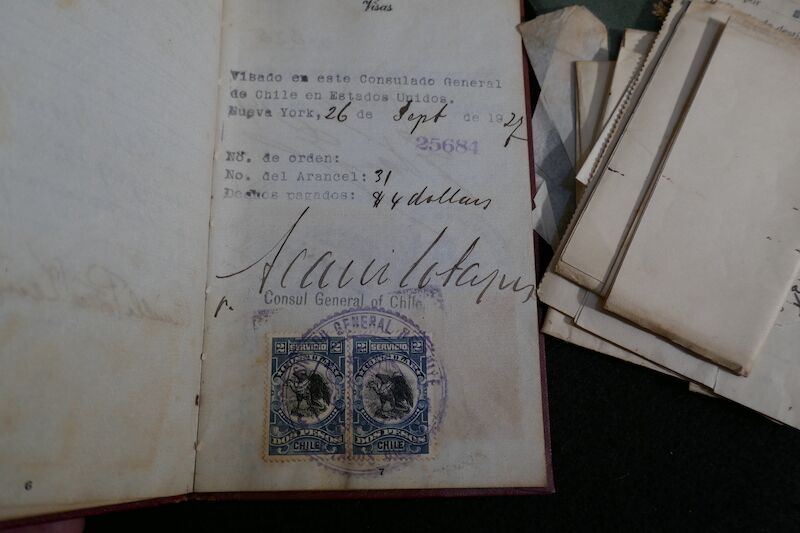 Visas
Visado en este Consulado General
de Chile en Estados Unidos.
Nueva York, 26 de Sept de 1927
25684
No. de orden:
No. del Arancel: 31
Dechos pagados: $4 dollars
Consul General of Chile
GENERAL
2 SERVICIO 2
CONSULAR
DOS PESOS
CHILE
2 SERVICIO 2
CONSULAR
DOS PESOS
CHILE
6
7